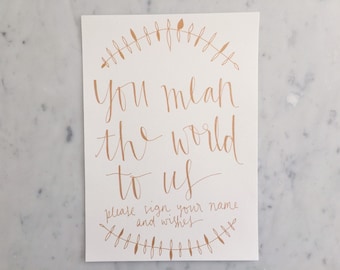 you mean
the world
to us
please sign your name
and wishes